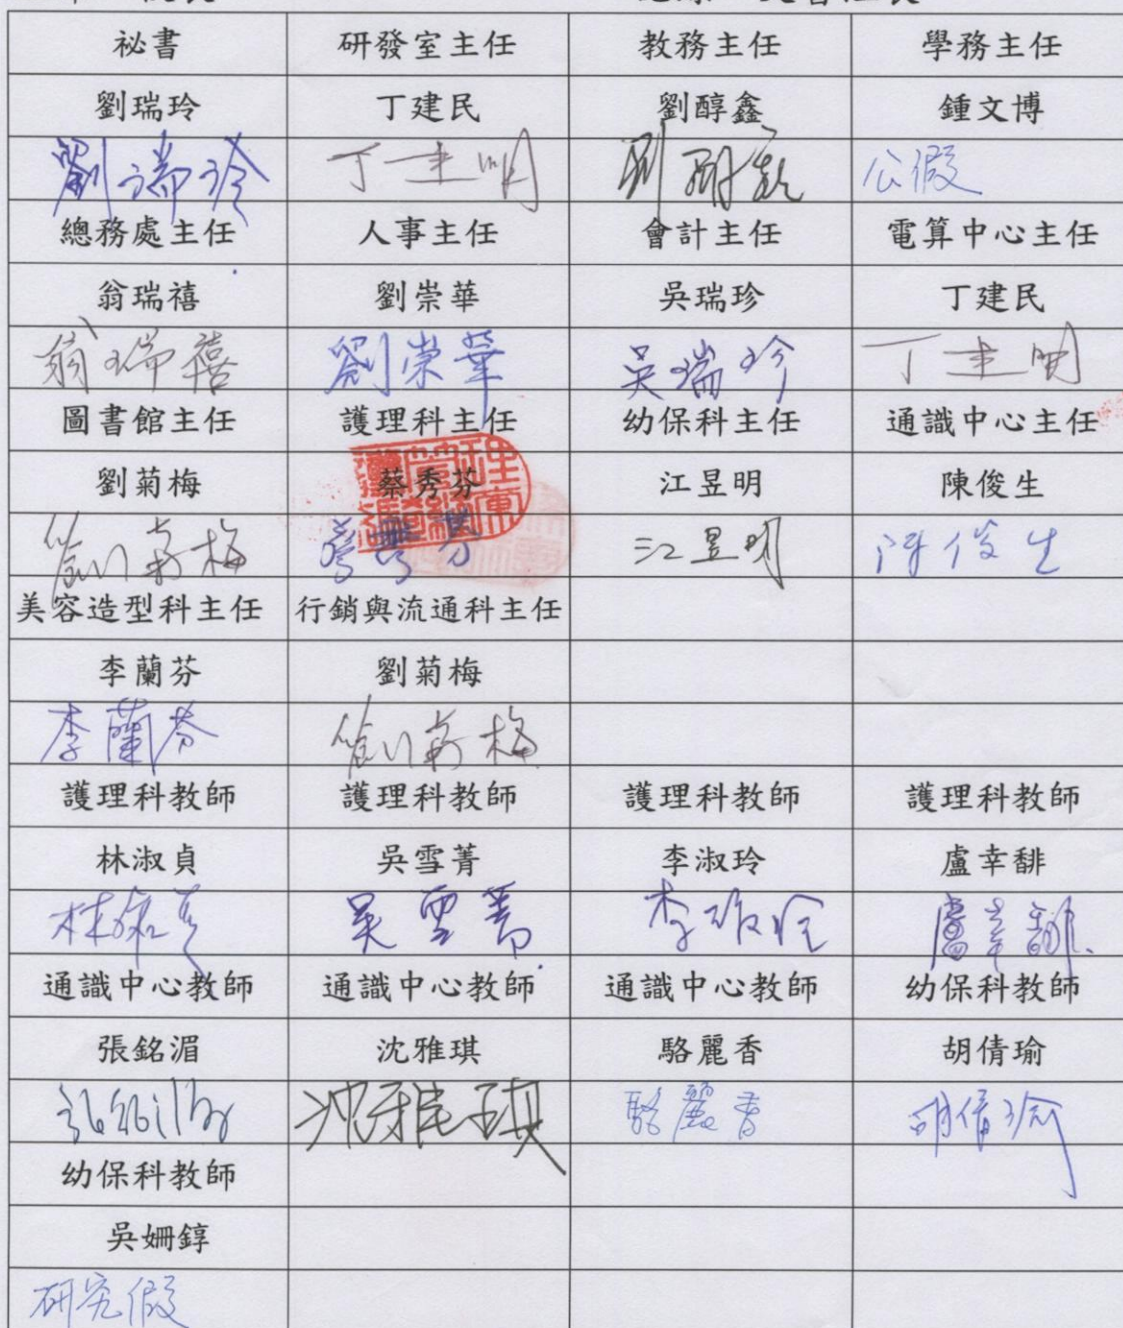 祕書 研發室主任 教務主任 學務主任
劉瑞玲 丁建民 劉醇鑫 鍾文博
劉瑞玲 丁建明 公假
總務處主任 人事主任 會計主任 電算中心主任
翁瑞禧 劉崇華 吳瑞珍 丁建民
翁瑞禧 劉崇華 吳瑞珍 丁建明
圖書館主任 護理科主任 幼保科主任 通識中心主任
劉菊梅 蔡秀芬 江昱明 陳俊生
劉菊梅 蔡秀芬 江昱明 陳俊生
美容造型科主任 行銷與流通科主任
李蘭芬 劉菊梅
李蘭芬 劉菊梅
護理科教師 護理科教師 護理科教師 護理科教師
林淑貞 吳雪菁 李淑玲 盧幸馡
林淑貞 吳雪菁 李淑玲 盧幸馡
通識中心教師 通識中心教師 通識中心教師 幼保科教師
張銘湄 沈雅琪 駱麗香 胡倩瑜
張銘湄 沈雅琪 駱麗香 胡倩瑜
幼保科教師
吳姍錞
研究假